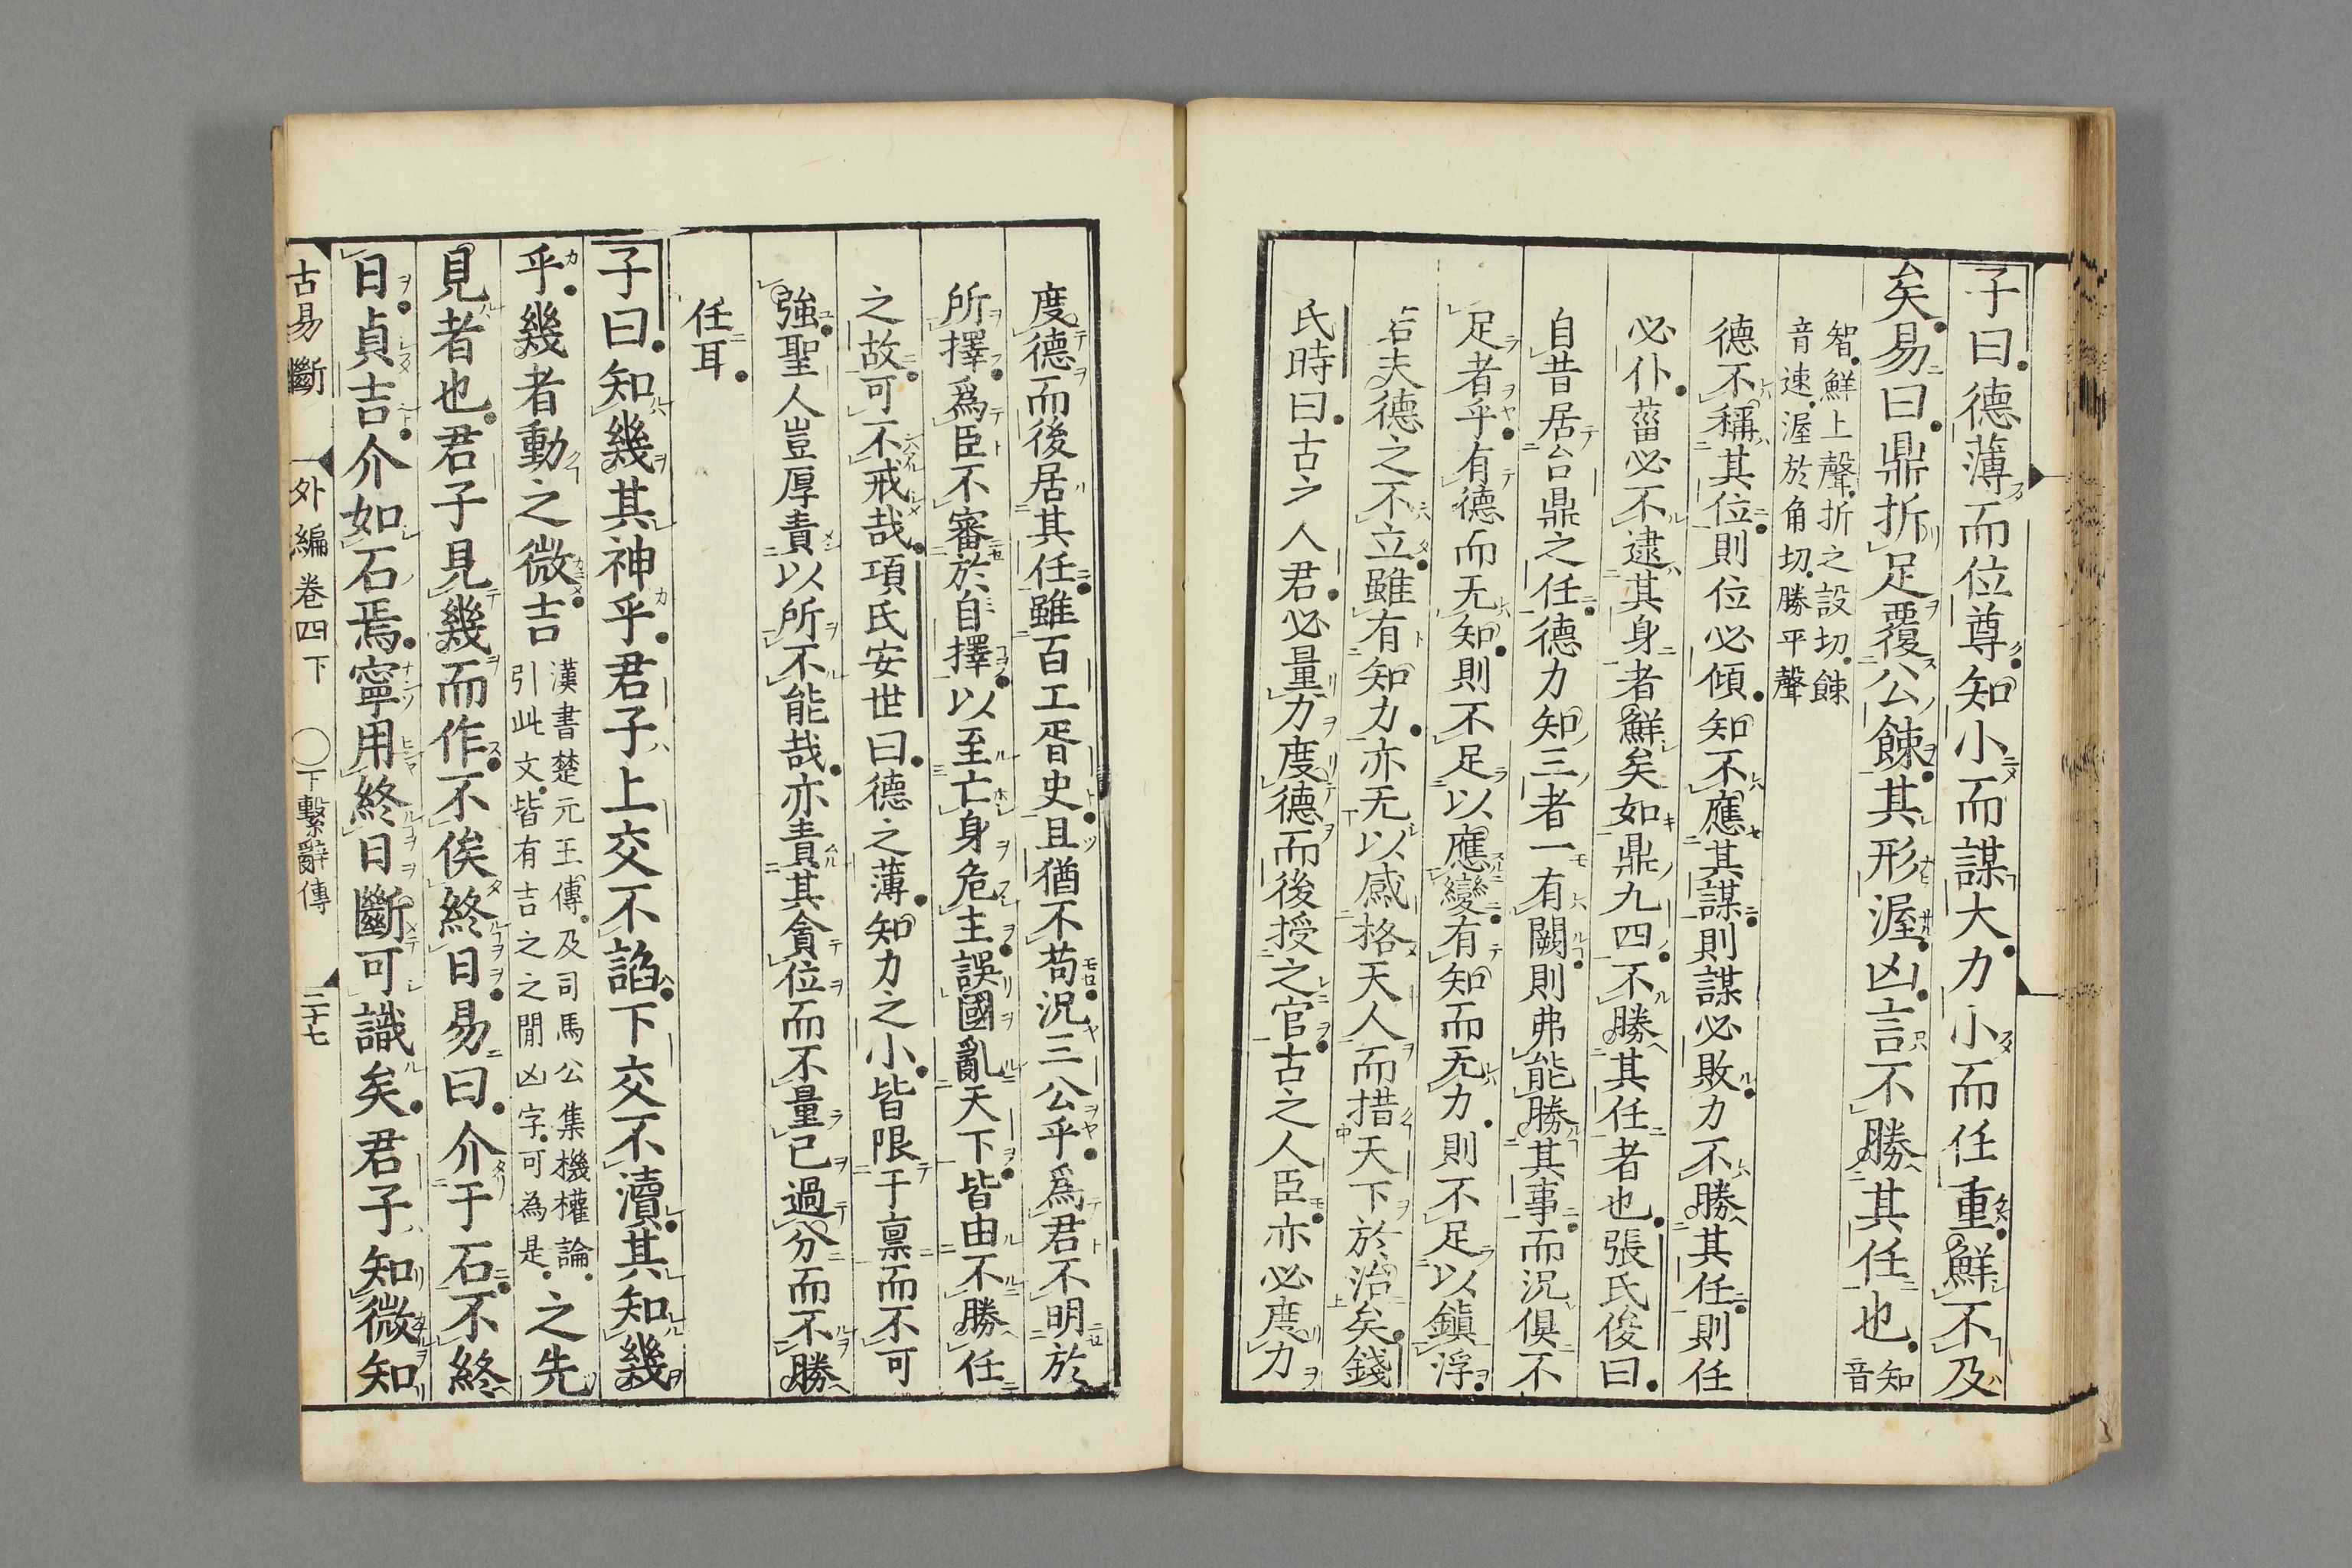 子曰德薄而位尊知小而謀大力小而任重鮮不及
矣易曰鼎折足覆公餗其形渥凶言不勝其任也知音
智鮮上聲折之設切餗
音速渥於角切勝平聲
德不稱其位則位必傾知不應其謀則謀必敗力不勝其任則任
必仆菑必不逮其身者鮮矣如鼎九四不勝其任者也張氏俊曰
自昔居台鼎之任德力知三者一有闕則弗能勝其事而況俱不
足者乎有德而无知則不足以應變有知而无力則不足以鎮浮
若夫德之不立雖有知力亦无以感格天人而措天下於治矣錢
氏時曰古之人君必量力度德而後授之官古之人臣亦必度力
度德而後居其任雖百工胥史且猶不苟況三公乎爲君不明於
所擇爲臣不審於自擇以至亡身危主誤國亂天下皆由不勝任
之故可不戒哉項氏安世曰德之薄知力之小皆限于禀而不可
強聖人豈厚責以所不能哉亦責其貪位而不量己過分而不勝
任耳
子曰知幾其神乎君子上交不諂下交不瀆其知幾
乎幾者動之微吉
漢書楚元王傳及司馬公集機權論
引此文皆有吉之之閒凶字可為是
之先
見者也君子見幾而作不俟終日易曰介于石不終
日貞吉介如石焉寧用終日斷可識矣君子知微知
古易斷 外編 卷四下 ○下繫辭傳 二十七